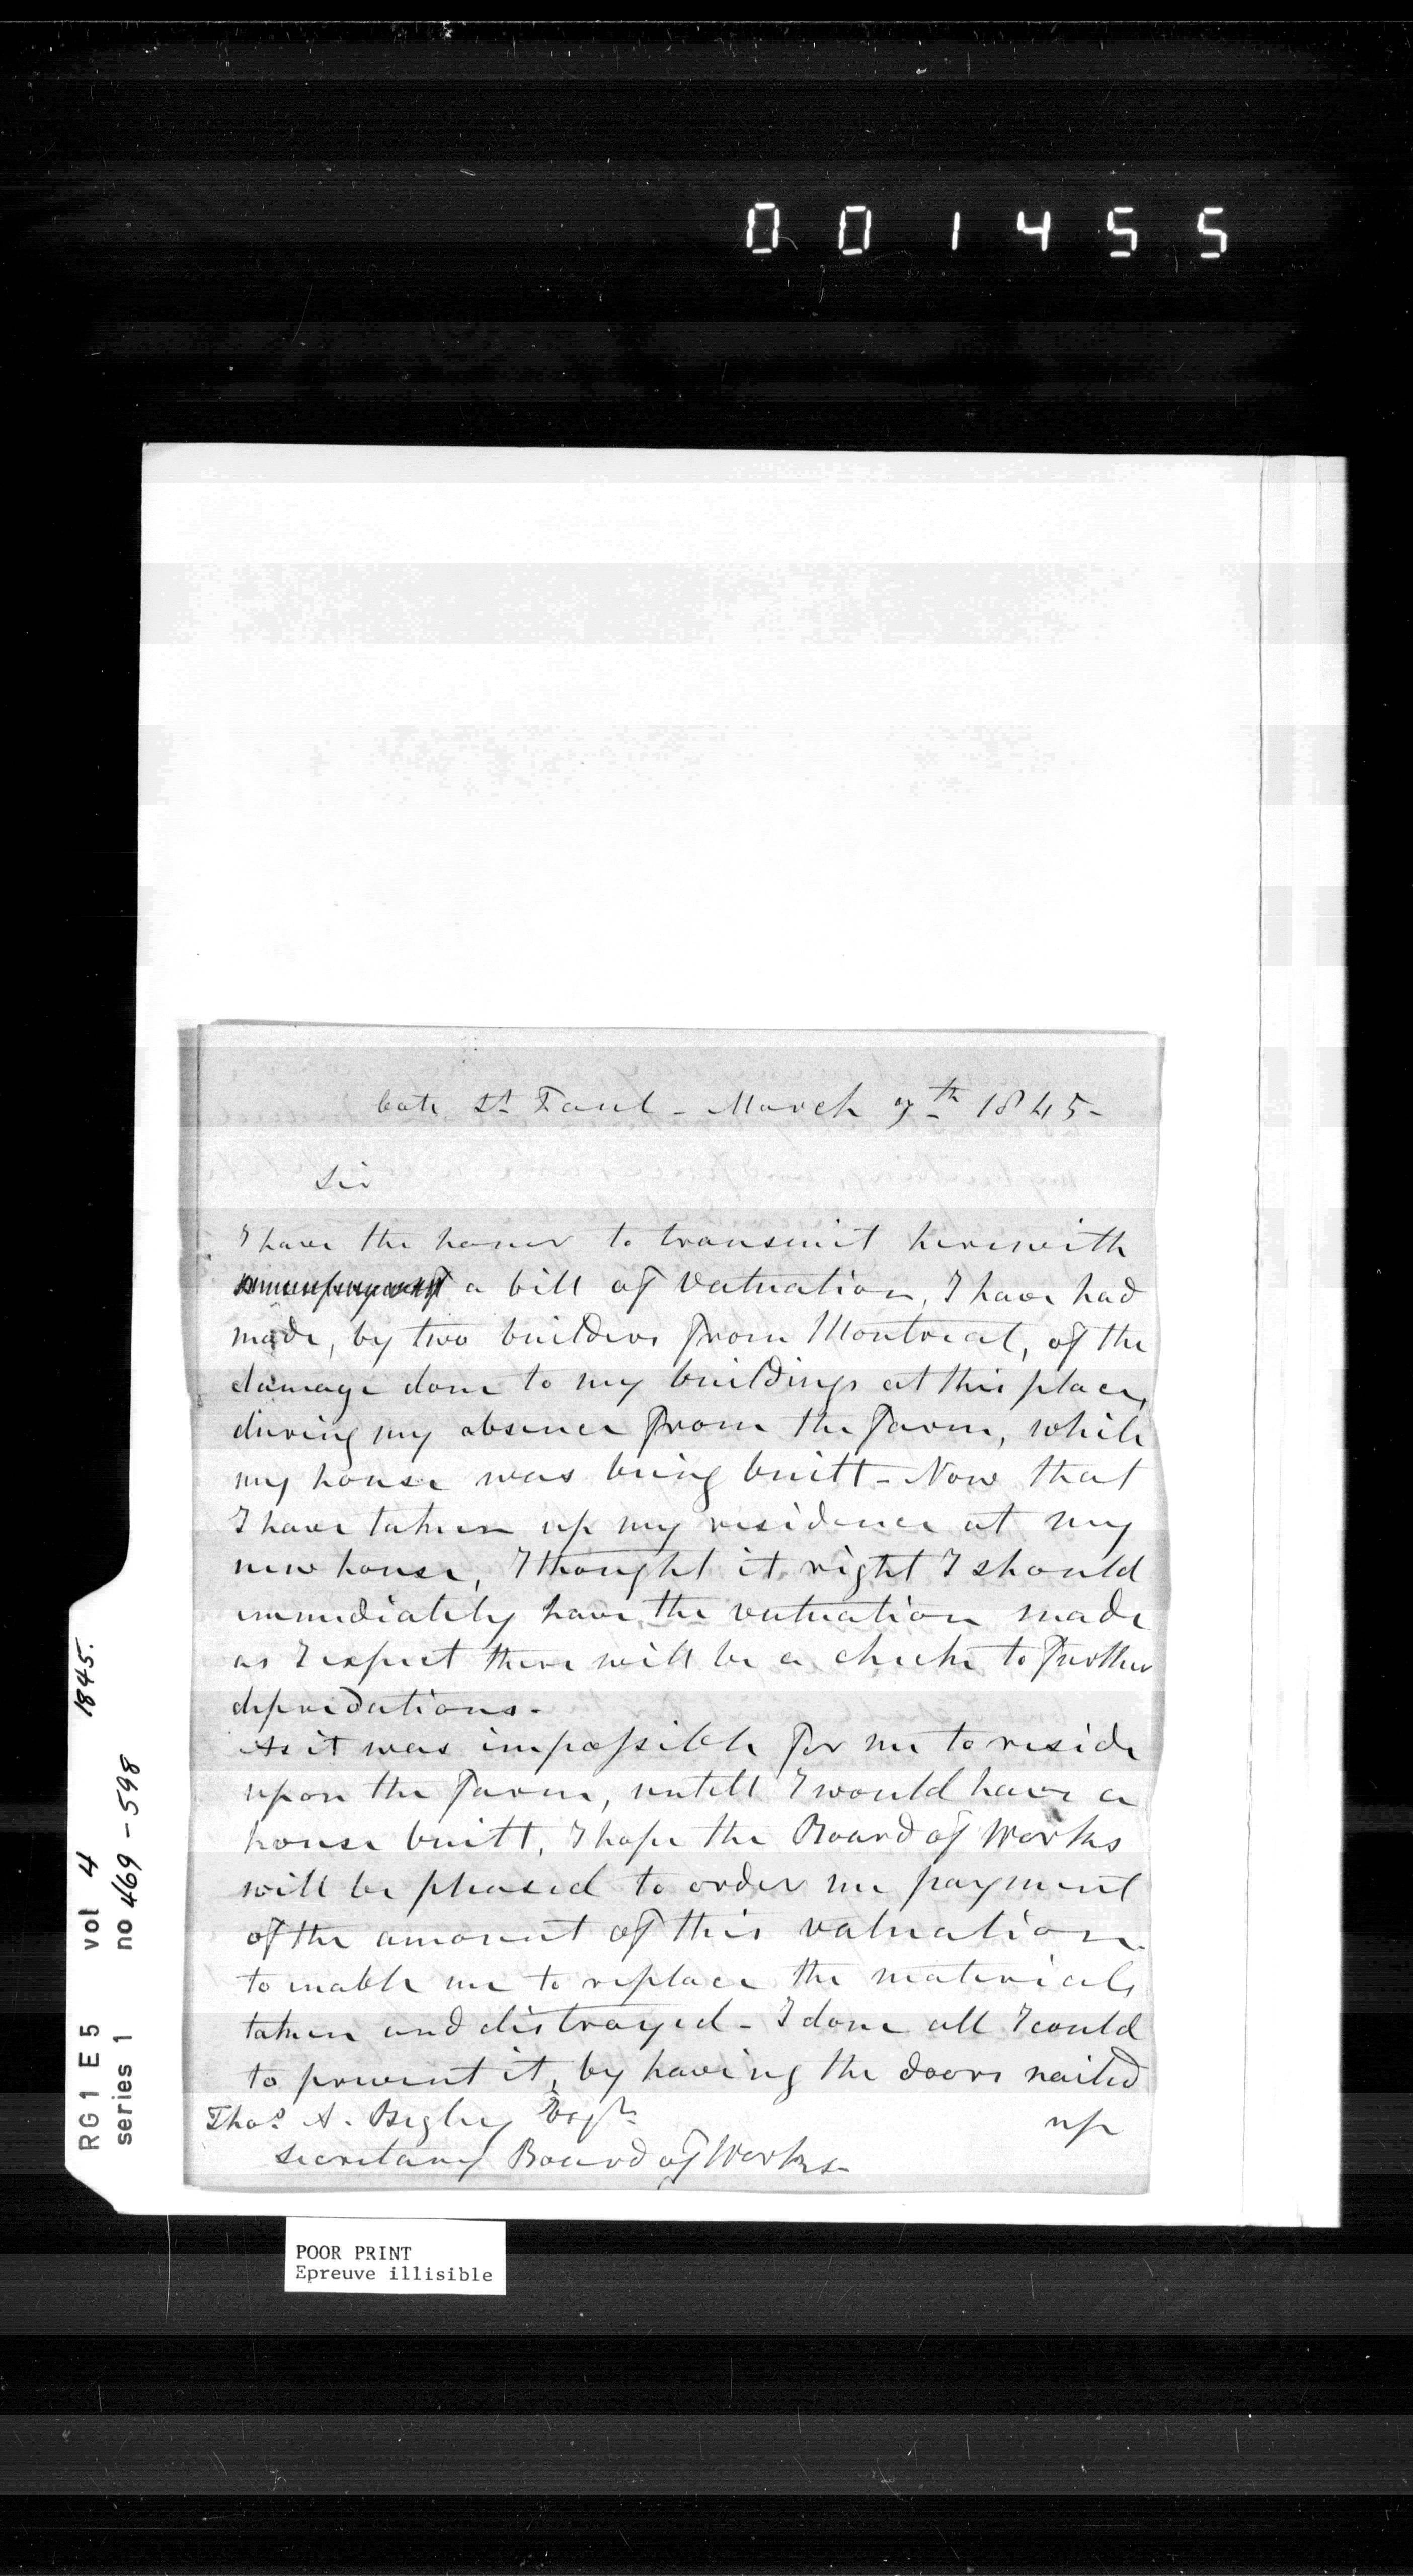 001455
Cote St Paul - March 7th 1845-
Sir
I have the honor to transmit herewith
a bill of valuation, I have had
made, by two builders from Montreal, of the
damage done to my buildings at this place,
during my absence from the farm, while
my house was being built - Now that
I have taken up my residence at my
new house, I thought it right I should
immediately have the valuation made
as I expect there will be a checke to further
depredations.-
As it was impossible for me to reside
upon the farm, untill I would have a
house built, I hope the Board of Works
will be pleased to order me payment
of the amount of this valuation
to enable me to replace the materials
taken and distroyed - I done all I could
to prevent it, by having the doors nailed
up
Thos. A. Begley Esqr.
Secretary Board of Works-
RG1 E5 vol 4 1845.
series 1 no 469-598
POOR PRINT
Epreuve illisible